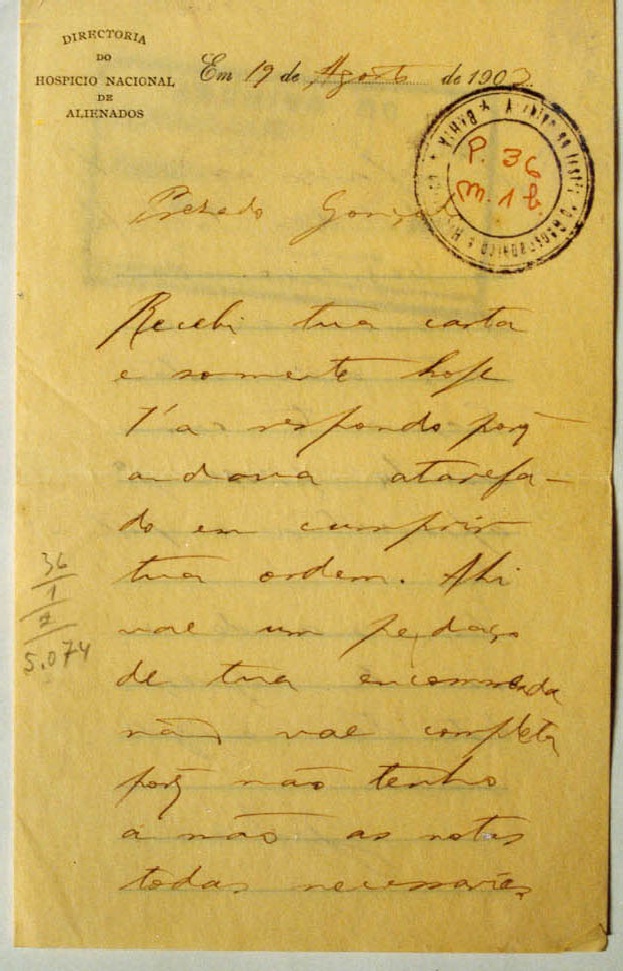 DIRECTORIA
DO
HOSPICIO NACIONAL
DE
ALIENADOS
Em 19 de Agosto de 1903
P. 36
M. 1 b
BAHIA
Prezado
Recebi tua carta
e somente hoje
t'a respondo porq
andava atarefa-
do em cumprir
tua ordem. Ahi
vae um pedaço
de tua encommenda
não vae completa
porq não tenho
a mão as notas
todas necessarias
36
1
2
5.074